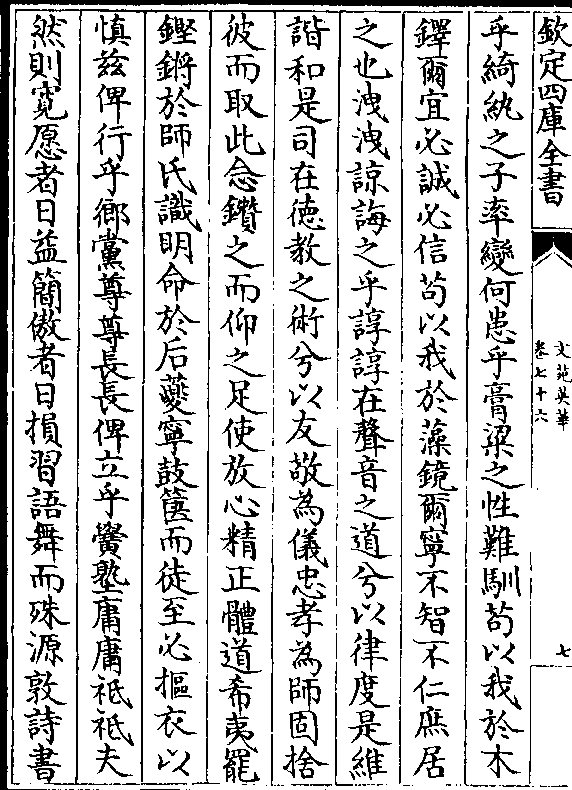 欽定四庫全書
文苑英華
卷七十六
七
乎綺紈之子率變何患乎膏粱之性難馴苟以我於木
鐸爾宜必誠必信苟以我於藻鏡爾寧不智不仁庶居
之也洩洩諒誨之乎諄諄在聲音之道兮以律度是維
諧和是司在德教之術兮以友敬為儀忠孝為師固捨
彼而取此念鑽之而仰之足使放心精正體道希夷罷
鏗鏘於師氏識明命於后夔寧鼓篋而徒至必摳衣以
慎兹俾行乎鄉黨尊尊長長俾立乎黌塾庸庸祗祗夫
然則寛愿者日益簡傲者日損習語舞而殊源敦詩書